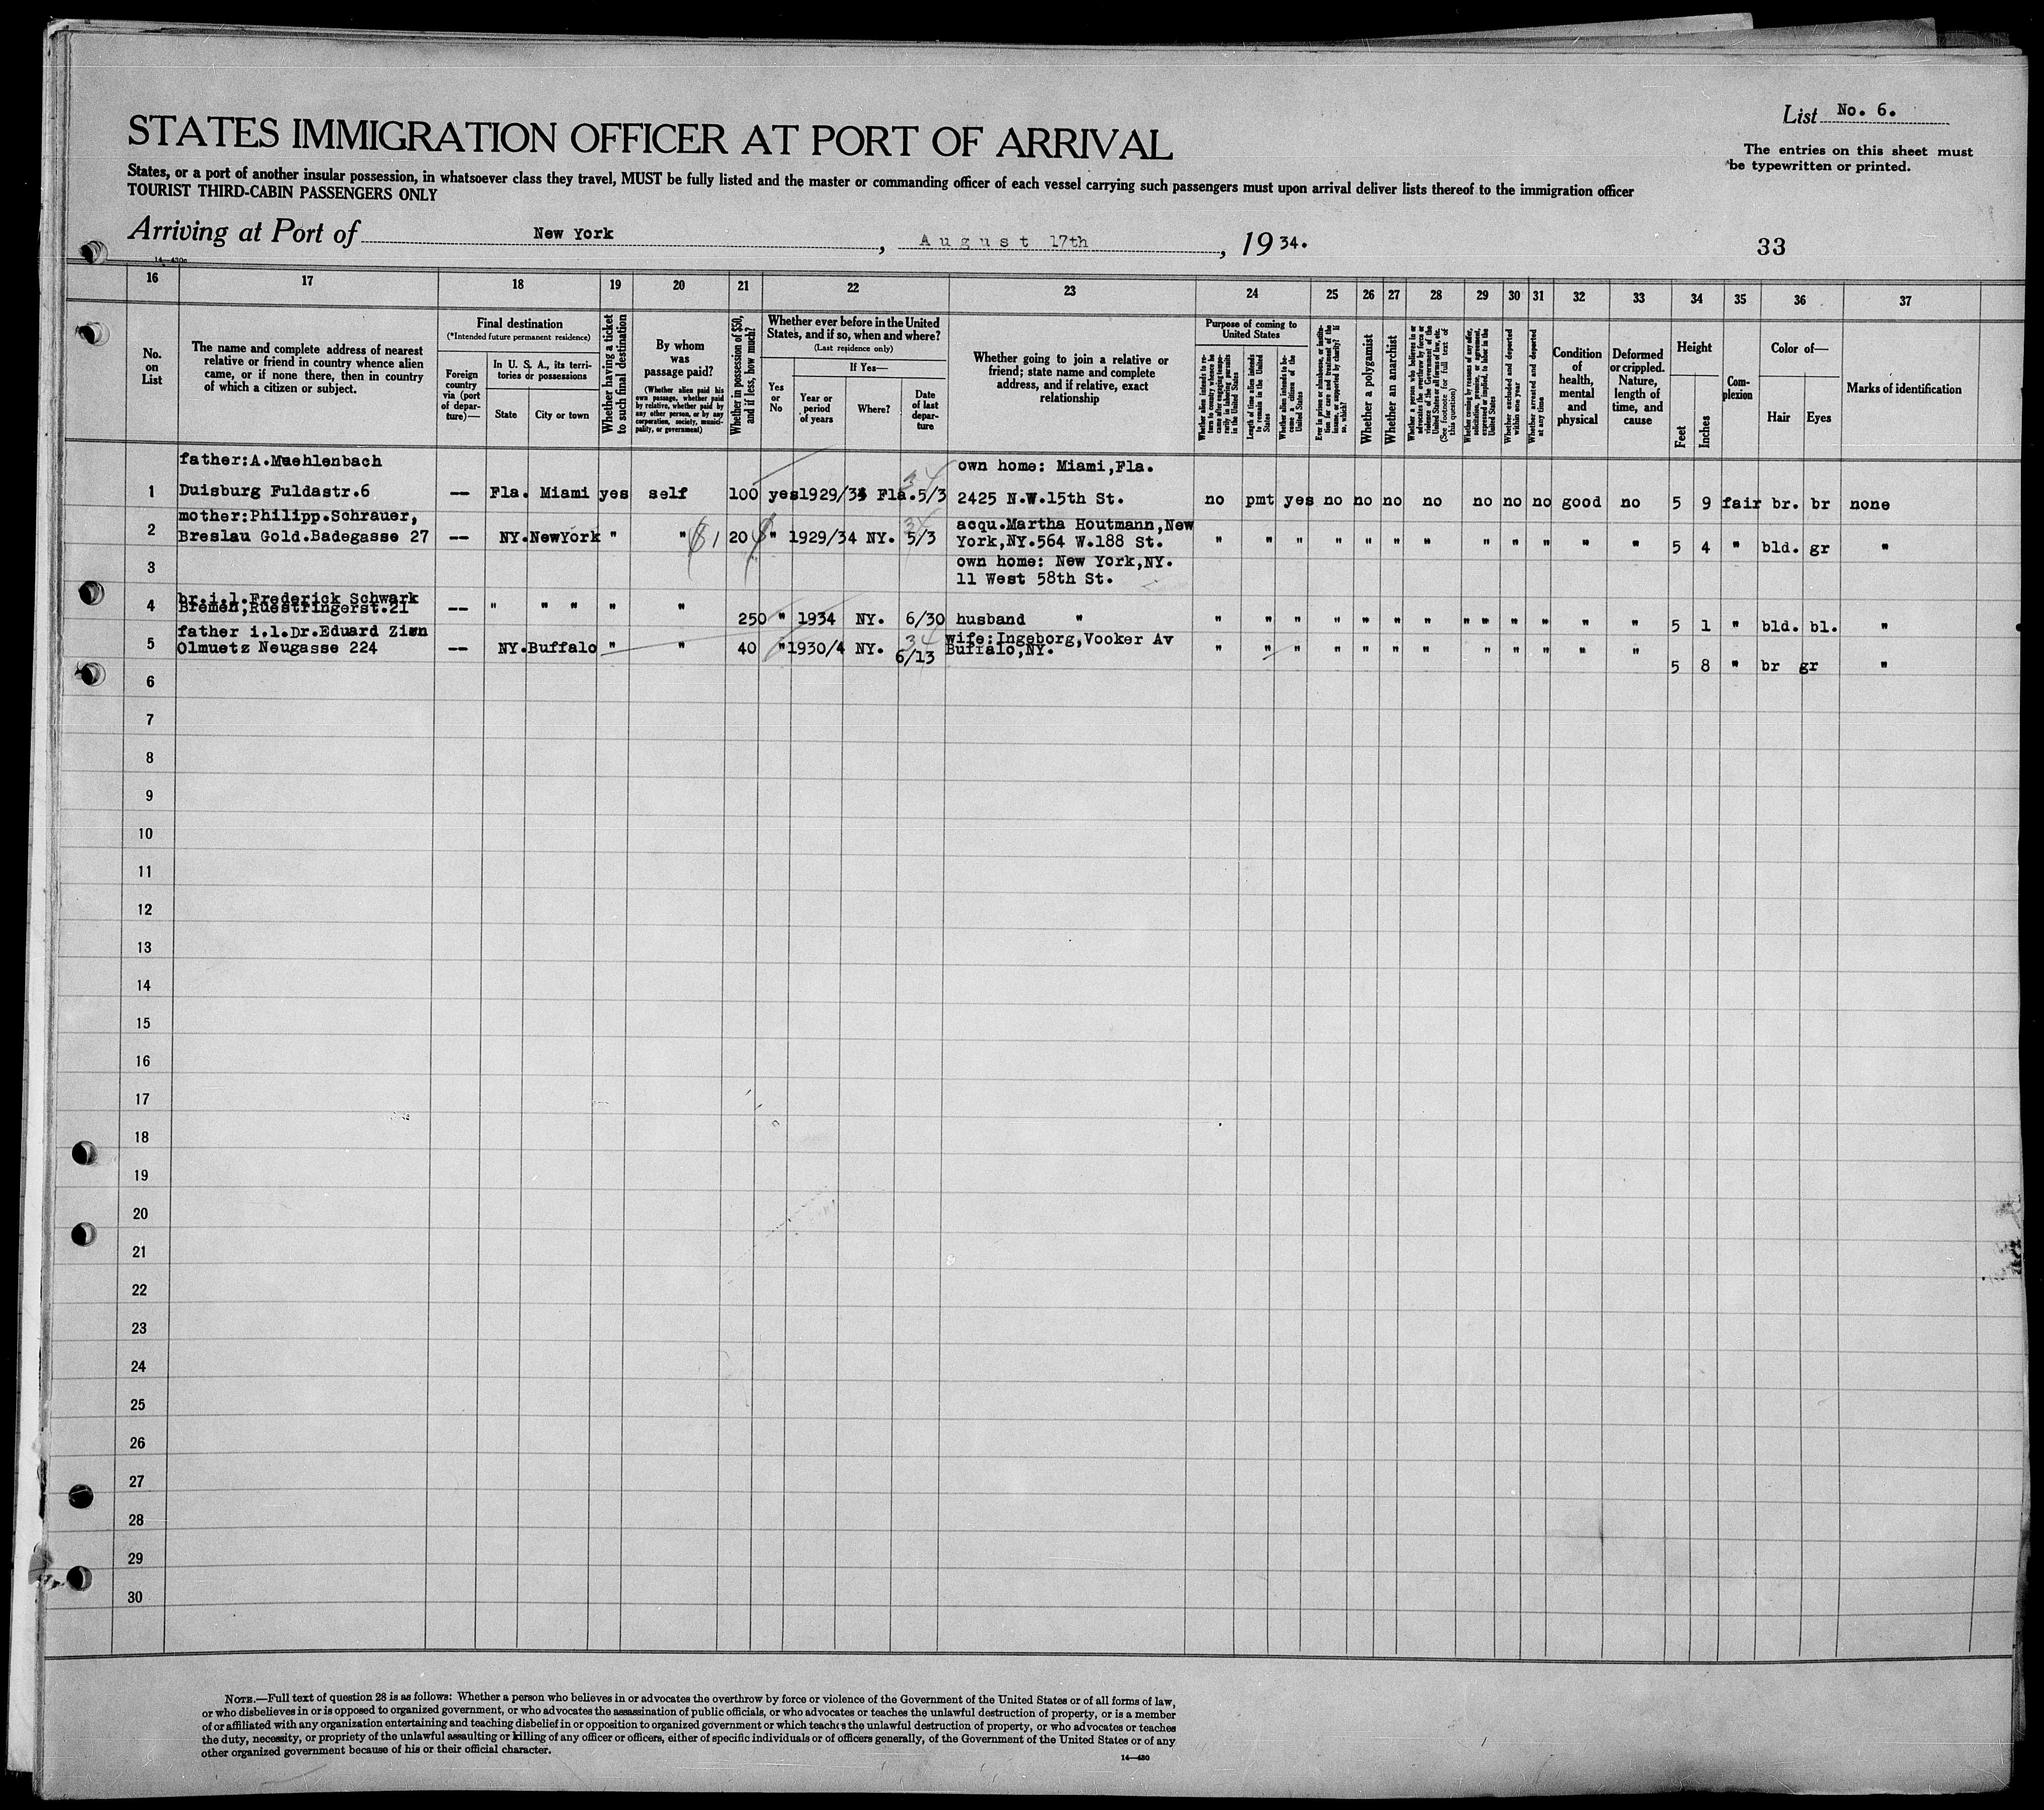 List No. 6.
STATES IMMIGRATION OFFICER AT PORT OF ARRIVAL
The entries on this sheet must
be typewritten or printed.
States, or a port of another insular possession, in whatsoever class they travel, MUST be fully listed and the master or commanding officer of each vessel carrying such passengers must upon arrival deliver lists thereof to the immigration officer
TOURIST THIRD-CABIN PASSENGERS ONLY
Arriving at Port of New York, August 17th, 1934.
33
14—430c
16 17 18 19 20 21 22 23 24 25 26 27 28 29 30 31 32 33 34 35 36 37
No. on List
The name and complete address of nearest
relative or friend in country whence alien
came, or if none there, then in country
of which a citizen or subject.
Final destination
(*Intended future permanent residence)
Foreign country via (port of departure)—
In U. S. A., its territories or possessions
State
City or town
Whether having a ticket to such final destination
By whom was passage paid?
(Whether alien paid his own passage, whether paid by relative, whether paid by any other person, or by any corporation, society, municipality, or government)
Whether in possession of $50, and if less, how much?
Whether ever before in the United
States, and if so, when and where?
(Last residence only)
Yes or No
If Yes—
Year or period of years
Where?
Date of last departure
Whether going to join a relative or
friend; state name and complete
address, and if relative, exact
relationship
Purpose of coming to
United States
Length of time alien intends to remain in the United States
Whether alien intends to become a citizen of the United States
Whether a polygamist
Whether an anarchist
Whether excluded and deported within one year
Whether arrested and deported at any time
Condition of health, mental and physical
Deformed or crippled. Nature, length of time, and cause
Height
Feet
Inches
Complexion
Color of—
Hair
Eyes
Marks of identification
father:A.Muehlenbach own home: Miami,Fla.
1 Duisburg Fuldastr.6 -- Fla. Miami yes self 100 yes 1929/34 Fla. 5/3 34 2425 N.W.15th St. no pmt yes no no no no no no no good no 5 9 fair br. br none
mother:Philipp.Schrauer, acqu.Martha Houtmann,New
2 Breslau Gold.Badegasse 27 -- NY. NewYork " " 20 " 1929/34 NY. 5/3 34 York,NY.564 W.188 St. " " " " " " " " " " " " 5 4 " bld. gr "
3 own home: New York,NY.
11 West 58th St.
br.i.l.Frederick Schwark
4 Bremen,Ruestringerst.21 -- " " " " " 250 " 1934 NY. 6/30 husband " " " " " " " " " " " " " " 5 1 " bld. bl. "
father i.l.Dr.Eduard Zien wife:Ingeborg,Vooker Av
5 Olmuetz Neugasse 224 -- NY. Buffalo " " 40 " 1930/4 NY. 34 6/13 Buffalo,NY. " " " " " " " " " " " " 5 8 " br gr "
6
7
8
9
10
11
12
13
14
15
16
17
18
19
20
21
22
23
24
25
26
27
28
29
30
NOTE.—Full text of question 28 is as follows: Whether a person who believes in or advocates the overthrow by force or violence of the Government of the United States or of all forms of law,
or who disbelieves in or is opposed to organized government, or who advocates the assassination of public officials, or who advocates or teaches the unlawful destruction of property, or is a member
of or affiliated with any organization entertaining and teaching disbelief in or opposition to organized government or which teaches the unlawful destruction of property, or who advocates or teaches
the duty, necessity, or propriety of the unlawful assaulting or killing of any officer or officers, either of specific individuals or of officers generally, of the Government of the United States or of any
other organized government because of his or their official character.
14—430